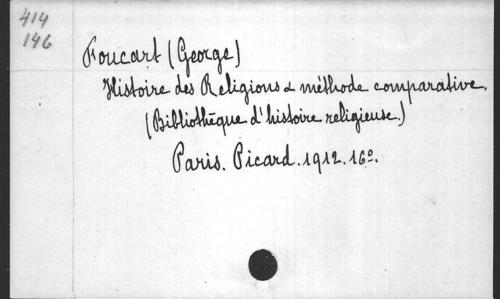 414
146
Foucart (George)
Histoire des Religions & méthode comparative.
(Bibliothèque d'histoire religieuse.)
Paris. Picard. 1912. 16º.